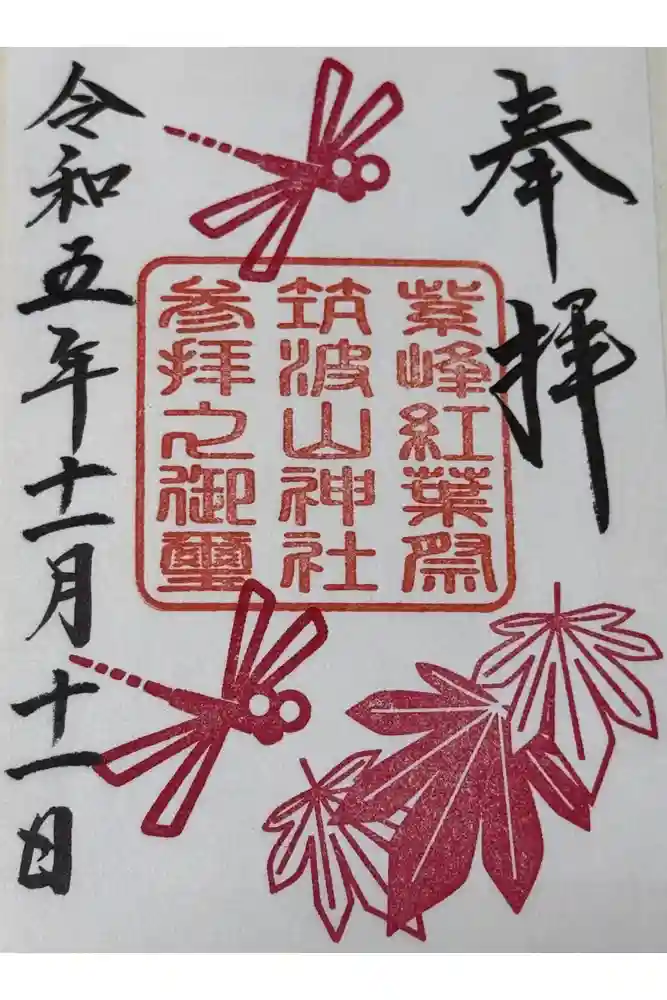 奉拝
紫峰紅葉祭
筑波山神社
参拝之御璽
令和五年十一月十一日